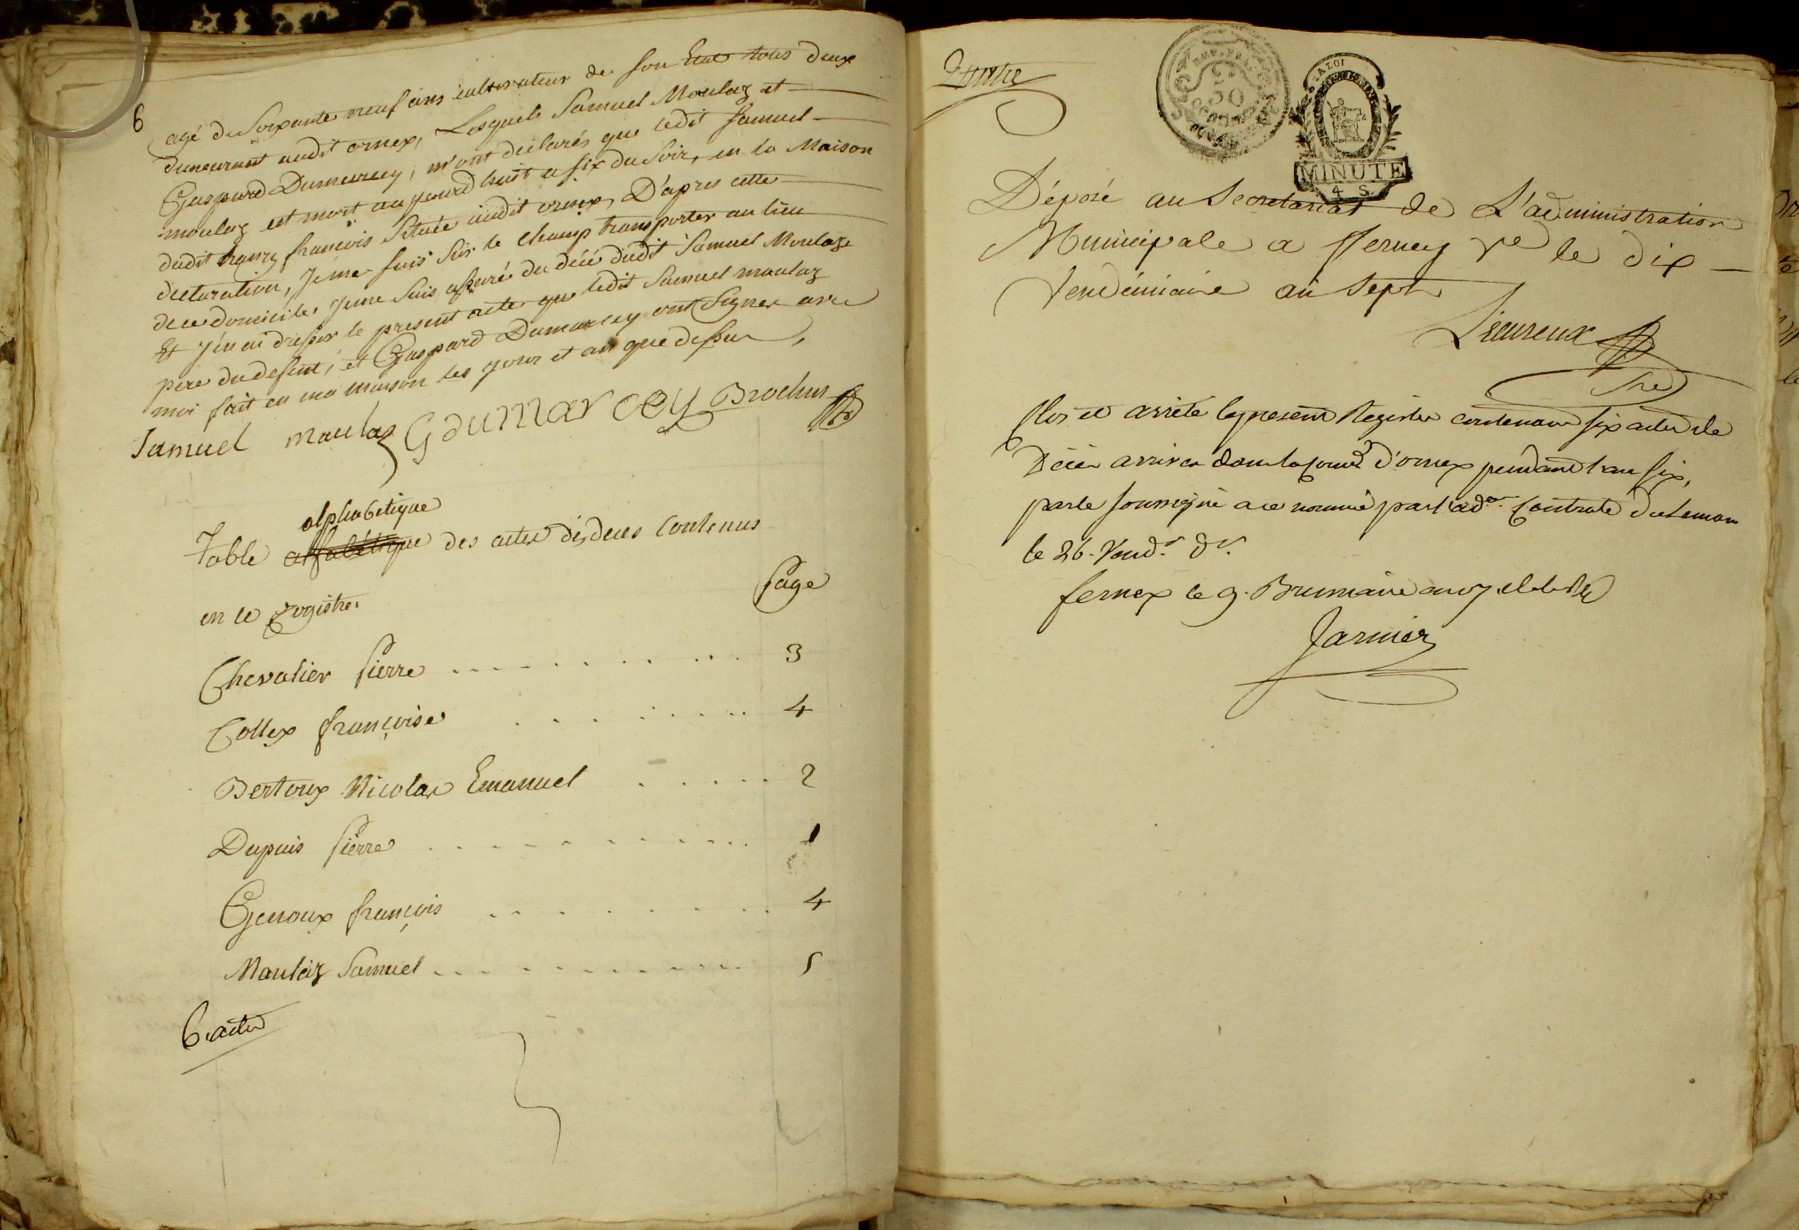 6
agé de Soixante neuf ans cultivateur de son Etat tous deux
demeurant audit ornex, Lesquels Samuel Moulaz et
Gaspard Dumarcey, m'ont déclarés que ledit Samuel
moulaz est mort aujourd'huit a six du Soir, en la Maison
dudit françois Située audit ornex, D'apres cette
declaration, Je me suis Sur le Champ transporter au lieu
de ce domicile, Je me Suis assuré du décé dudit Samuel Moulaz
Et J'en ai dressér le present acte que ledit Samuel moulaz
pere du defunt, et Gaspard Dumarcey ont Signer avec
moi fait en ma maison les jour et an que dessus,
Samuel moulaz G dumarcey Brochus
alphabetique
Table alfabétique des actes de deces Contenus
en ce registre
Page
Chevalier Pierre 3
Collex françoise 4
Bertoux Nicolas Emanuel 2
Dupuis Pierre 1
Genoux françois 4
Moulaz Samuel 5
6 actes
MINUTE
4 S.
Déposé au Secretariat de L'administration
Municipale a fferney Vre le dix
Vendémiaire an Sept
L'heureux
Sre
Clos et arrêté le present Registre contenant six actes de
Décès arrivés dans la Comne d'ornex pendant l'an six,
par le soussigné a ce nommé par l'adon Centrale du Leman
le 26 Vendre dr
fernex le 9 Brumaire an 7 de la Rep
Jarnier